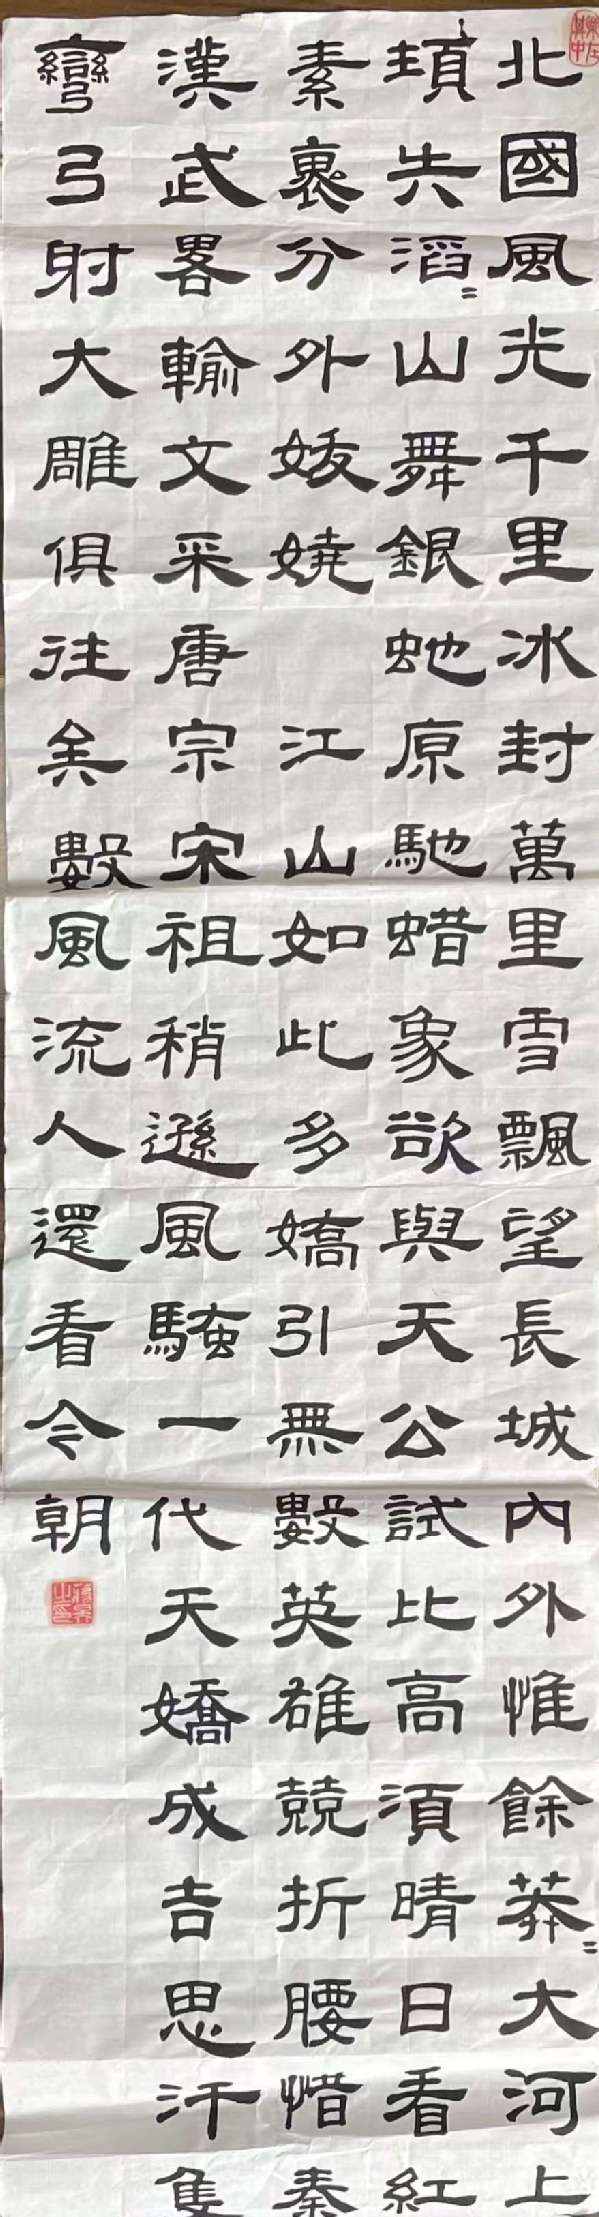 北國風光千里冰封萬里雪飄望長城內外惟餘莽〻大河上
頓失滔〻山舞銀虵原馳蜡象欲與天公試比高須晴日看紅
素裹分外妖嬈 江山如此多嬌引無數英雄競折腰惜秦
漢武畧輸文采唐宗宋祖稍遜風騷一代天嬌成吉思汗隻
彎弓射大雕俱往矣數風流人還看今朝